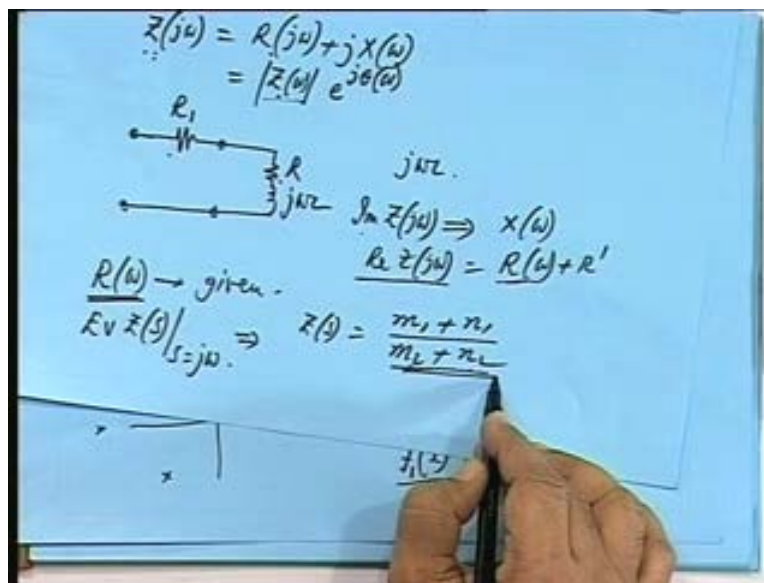 Z(jω) = R(jω) + jX(ω)
= |Z(ω)| e^{jθ(ω)}
R₁
R
jωL
jωL.
Im Z(jω) ⇒ X(ω)
Re Z(jω) = R(ω) + R'
R(ω) → given.
Ev Z(s)|_{s=jω.} ⇒ Z(s) = \frac{m₁ + n₁}{m₂ + n₂}
x
x